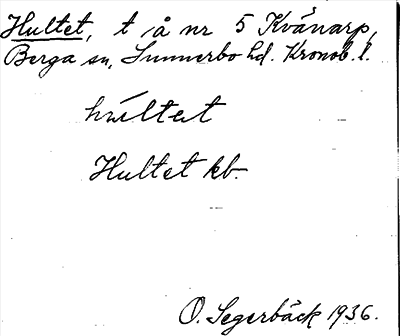 Hultet, t å nr 5 Kvänarp,
Berga sn, Sunnerbo hd. Kronob. l.
hultet
Hultet kb.
O. Segerbäck 1936.